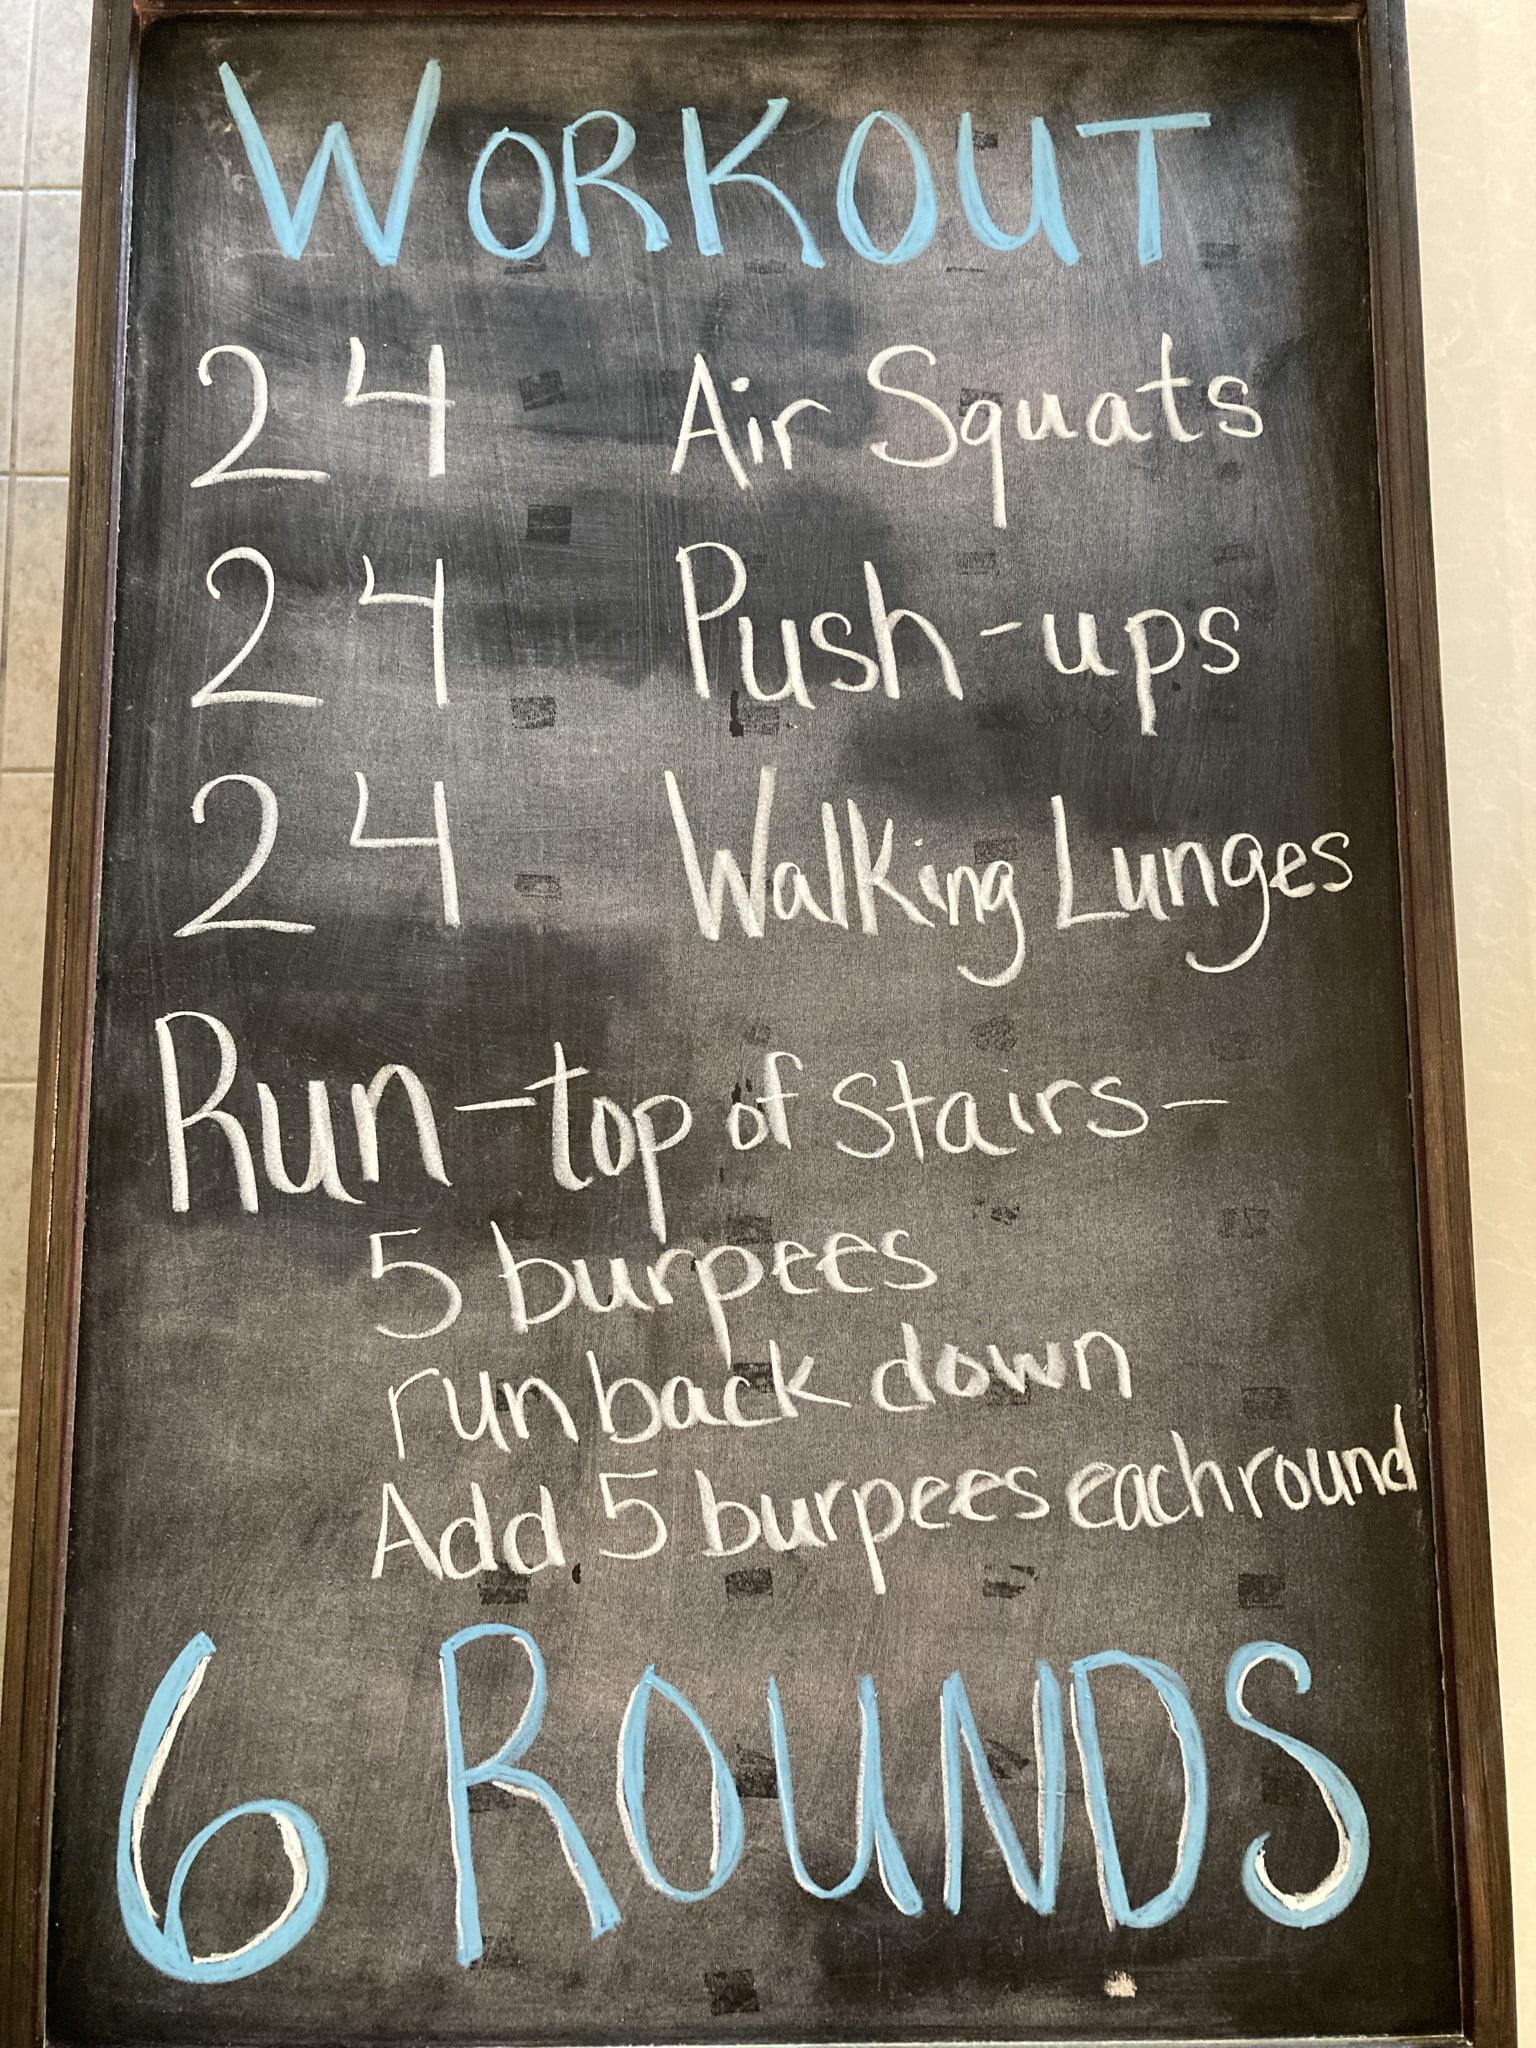 WORKOUT
24 Air Squats
24 Push-ups
24 Walking Lunges
Run - top of stairs -
5 burpees
run back down
Add 5 burpees each round
6 ROUNDS